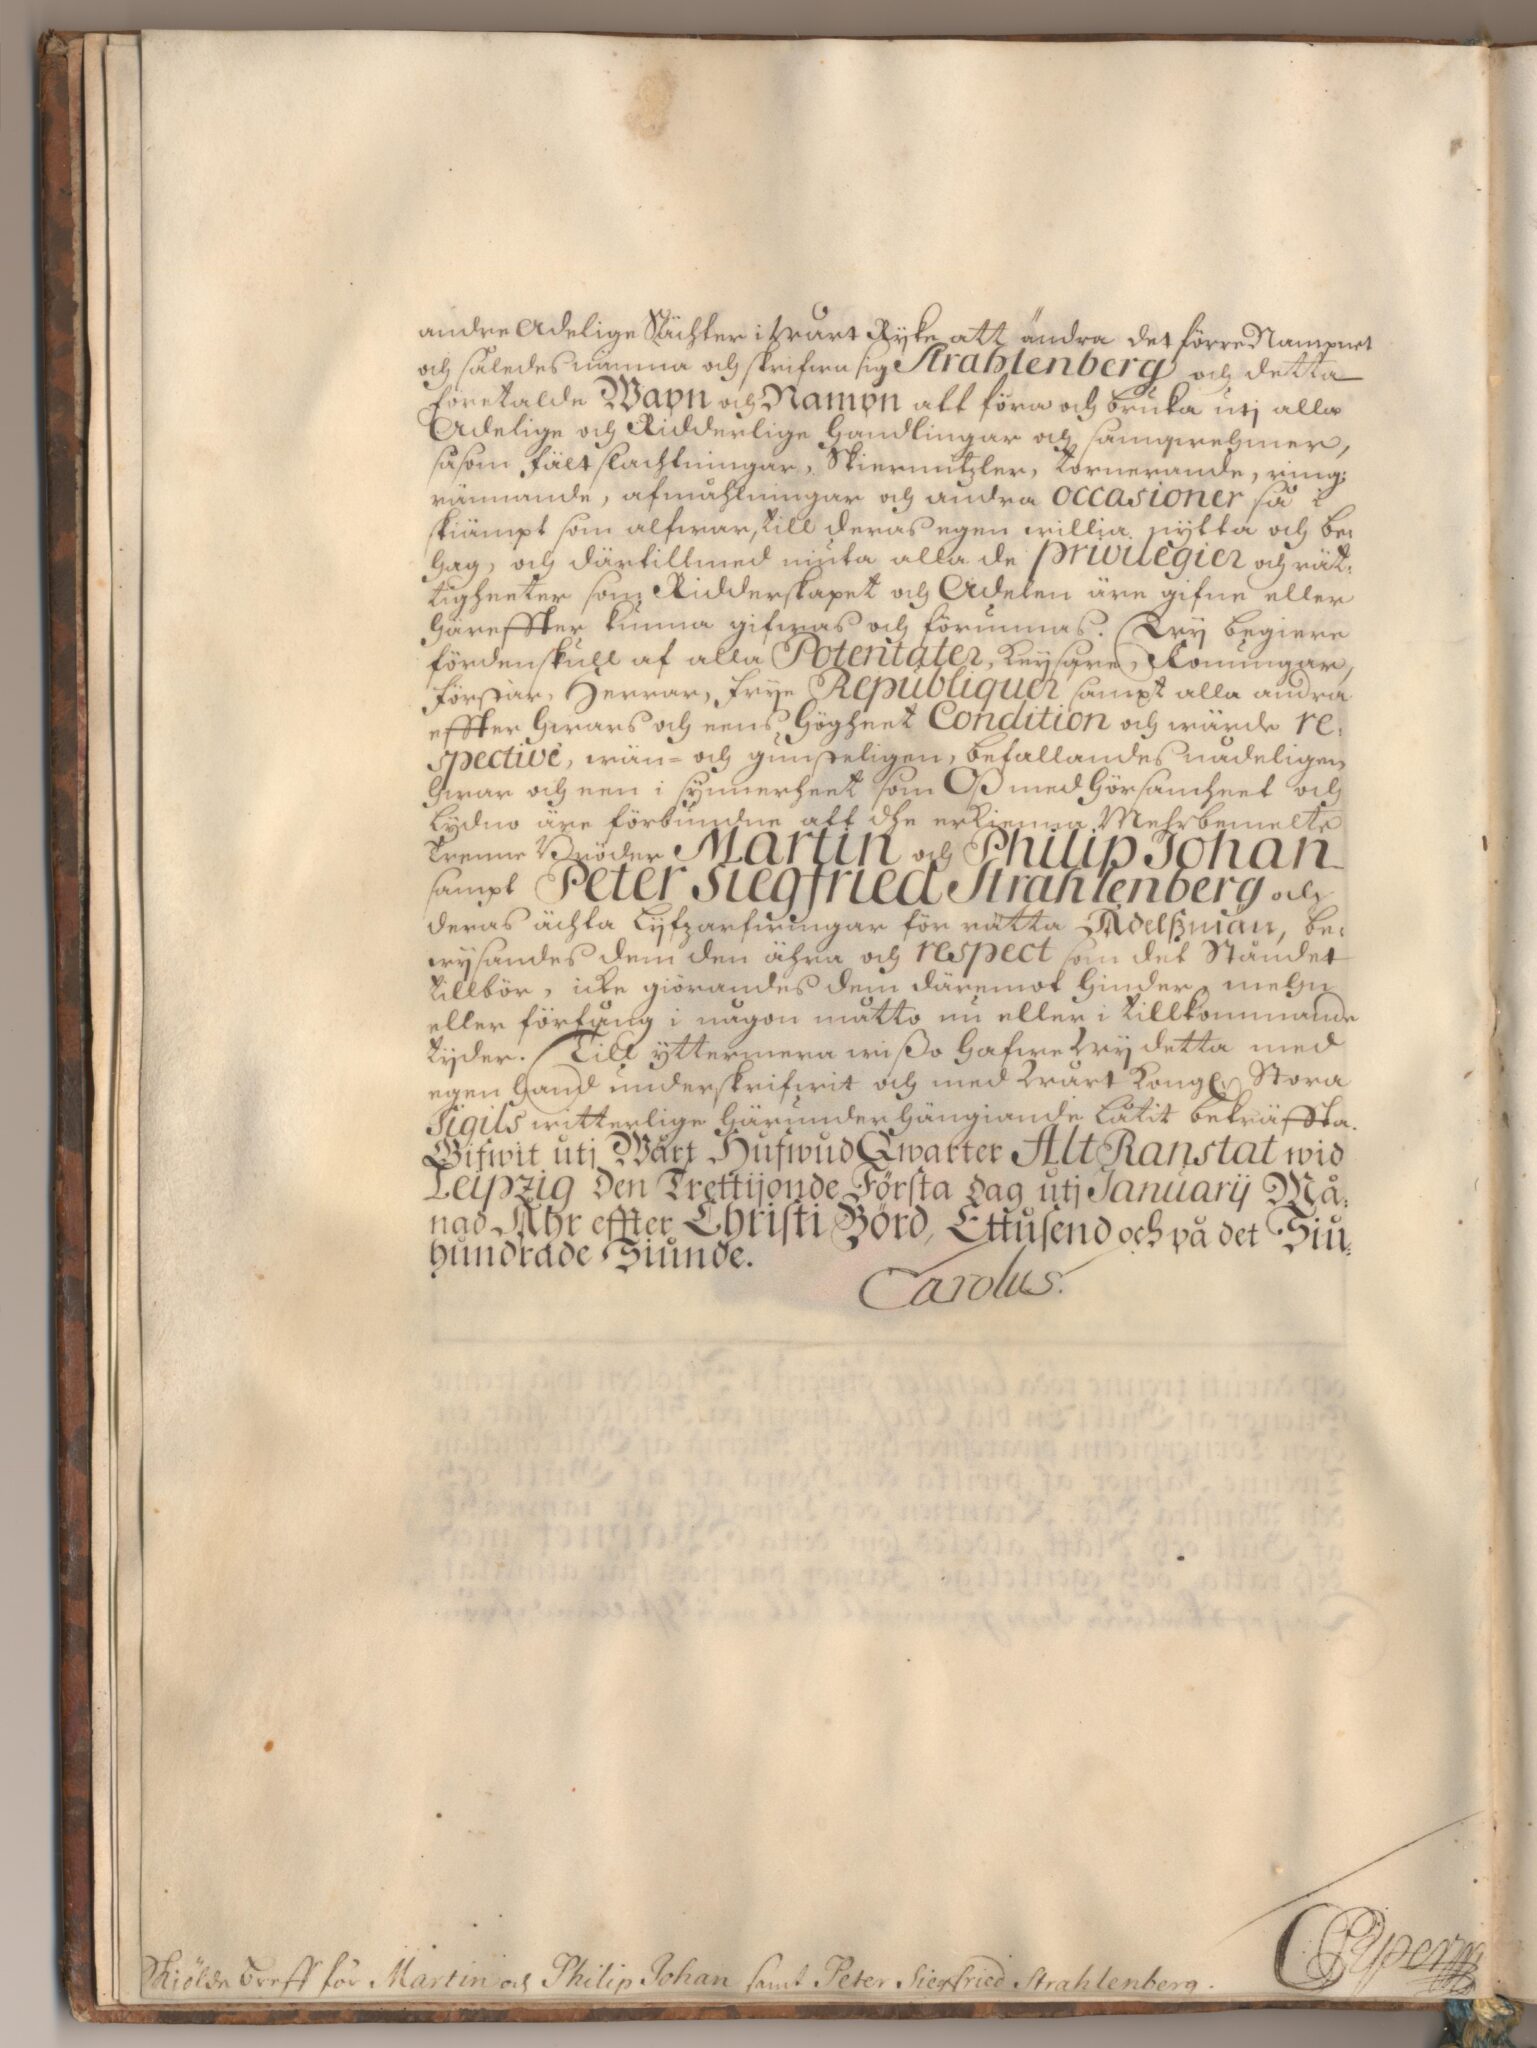 andre Adelige Slächter i Wårt Ryke att ändra det förre Nampnet
och således nämna och skrifwa sig Strahlenberg, och detta
företalde Wapn och Namпn att föra och bruka utj alla
Adelige och Ridderlige Handlingar och samqwehmer,
såsom fält slachtningar, Skiermützler, tornerande, ring-
rännande, afmåhlningar och andra occasioner så i
skiämpt som alfwar, till deras egen willja, nytta och be-
hag, och därtillmed niuta alla de privilegier och rät-
tigheeter som Ridderskapet och Adelen äre gifne eller
häreffter kunna gifwas och förunnas. Wy begiere
fördenskull af alla Potentater, Keysare, Konungar,
förstar, Herrar, frye Republiquer sampt alla andra
effter hwars och eens Högheet Condition och wärde re-
spectivè, wän- och gunsteligen, befallandes nådeligen
hwar och een i synnerheet som Oß med hörsamheet och
lydno äre förbundne att dhe erkienna Mehrbemelte
trenne Bröder Martin och Philip Johan
sampt Peter Siegfried Strahlenberg och
deras ächta Lyfzarfwingar för rätta Adelßmän, be-
wysandes dem den ähra och respect som det Ståndet
tillbör, icke giörandes dem däremot hinder, mehn
eller förfång i någon måtto nu eller i tillkommande
tyder. Till yttermera wißo hafwe Wy detta med
egen hand underskrifwit och med Wårt Kongl. Stora
Sigils witterlige härunder hängiande låtit bekräffta.
Gifwit utj Wårt Hufwud Qwarter Alt Ranstat wid
Leipzig den Trettijonde Första dag utj Januarij Må-
nad Åhr effter Christi Börd, Ettusend och på det Siu-
hundrade Siunde.
Carolus.
Skiölde breff för Martin och Philip Johan samt Peter Siegfried Strahlenberg.
C Piper